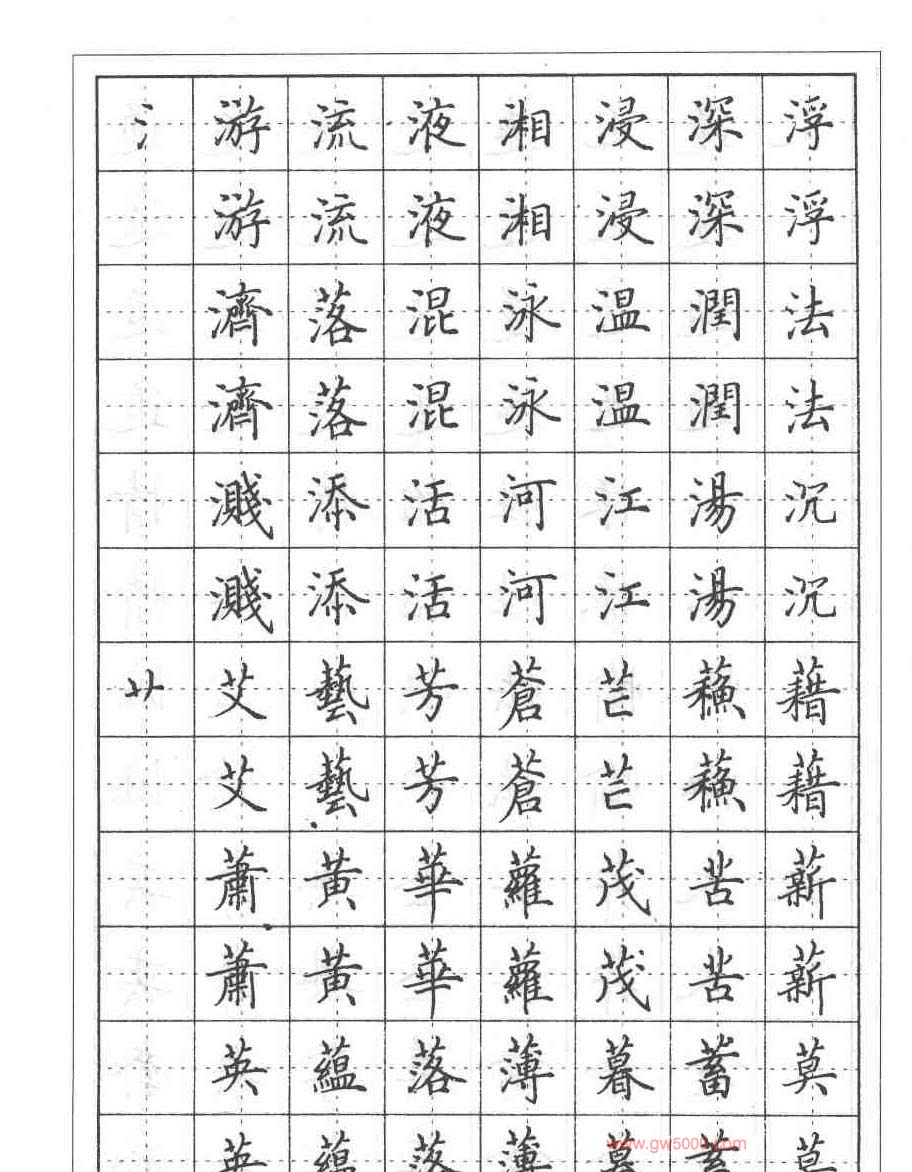 氵游流液湘浸深浮
游流液湘浸深浮
濟落混泳温潤法
濟落混泳温潤法
濺添活河江湯沉
濺添活河江湯沉
艹艾藝芳蒼芒蘓藉
艾藝芳蒼芒蘓藉
蕭黄華蘿茂苦薪
蕭黄華蘿茂苦薪
英蘊落薄暮蓄莫
英蘊落薄暮蓄莫
www.gw5000.com